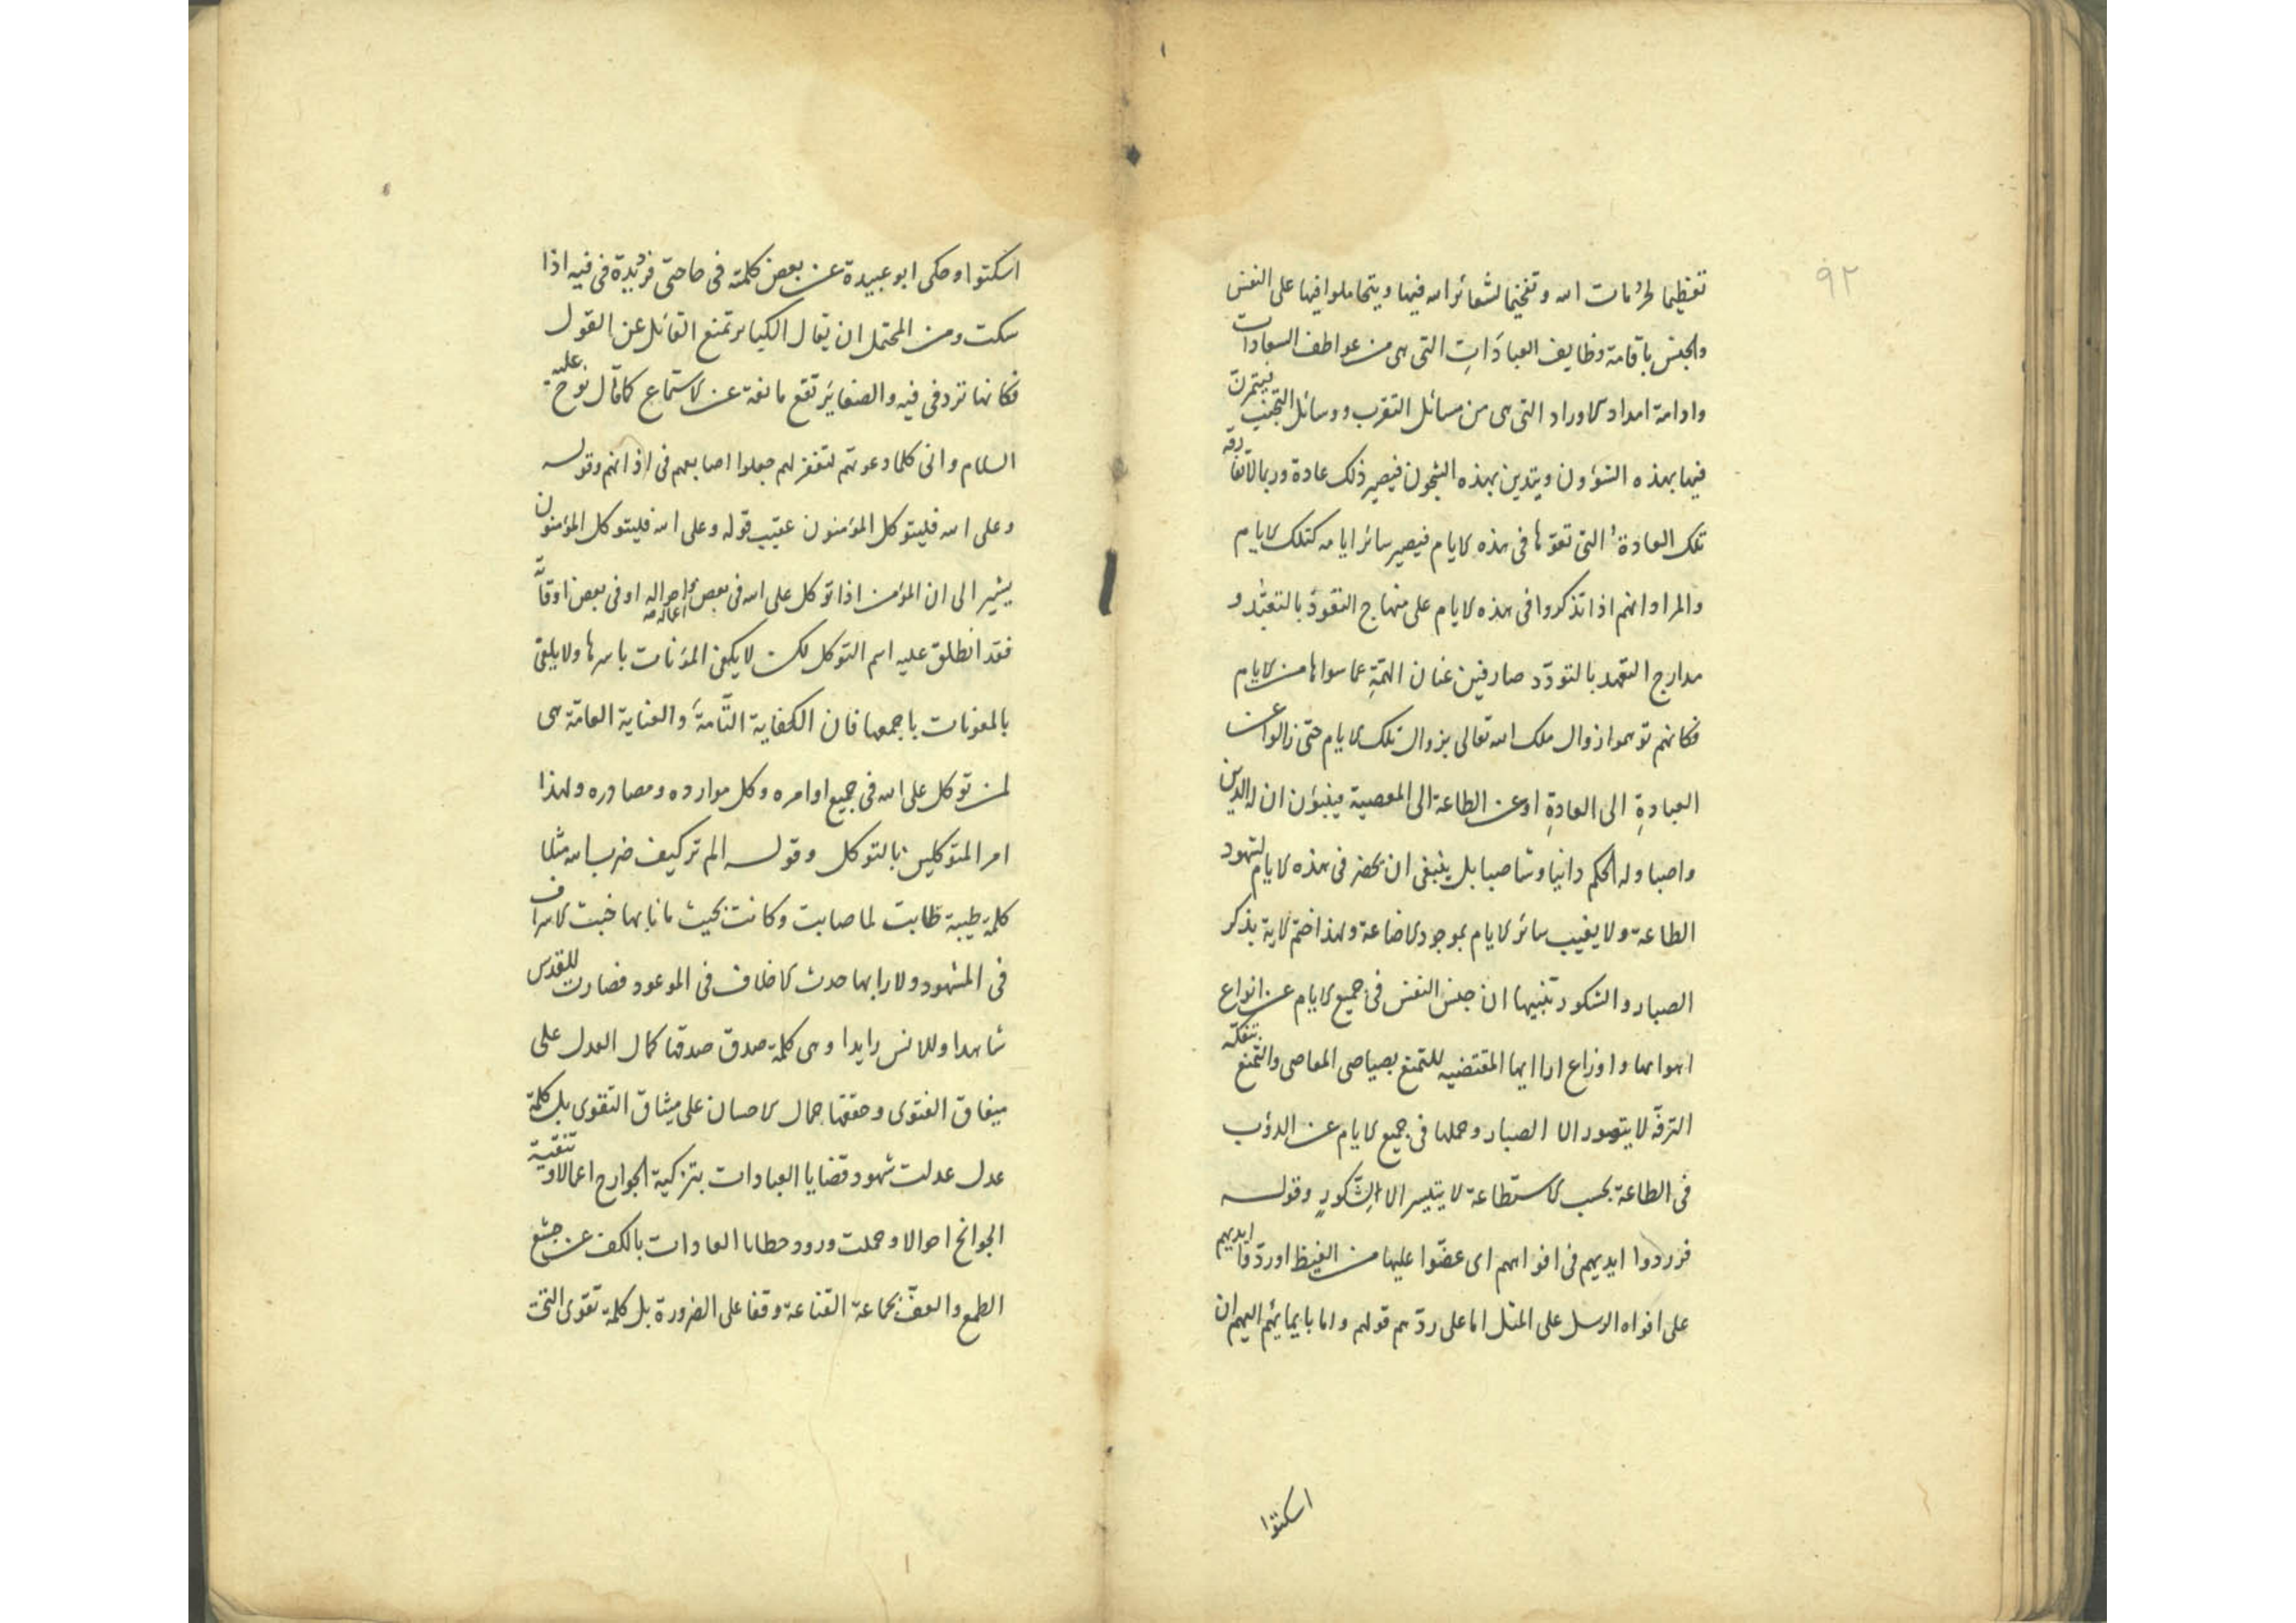 ٩٢
تعظيما لحرُمات الله وتفخيما لشعائر الله فيها ويتحاملوا فيها على النفس
والجنس باقامة وظايف العبادَاتِ التى هى من عواطف السعادات
وادامة امداد الاوراد التى هى من مسائل التقرب ووسائل التجنب فيتمرن
فيها بهذه الشؤون ويتدين بهذه الشجون فيصير ذلك عادة وربما لا تفارقه
تلك العادة التى تعوّدها فى هذه الايام فيصير سائر ايامه كتلك الايام
والمراد انهم اذا تذكروا فى هذه الايام على منهاج التعوّد بالتعبّد و
مدارج التعهد بالتودّد صارفين عنان الهمّةِ عما سواها من الايام
فكانهم توهموا زوال ملك الله تعالى بزوال تلك الايام حتى زالوا عن
العبادةِ الى العادةِ اوعن الطاعة الى المعصية فينبؤن ان له الدين
واصبا وله الحكم دانيا وشاصبا بل ينبغى ان يحضر فى هذه الايام لشهود
الطاعة ولا يغيب سائر الايام بموجود الاضاعة ولهذا ختم الاية بذكر
الصبار والشكور تنبيها ان حبس النفس فى جميع الايام عن انواع
اهوائها واوزاع ارائها المقتضيه للتمنع بصياصى المعاصى والتمتع بتفكّه
الترفّه لا يتصور الا الصبار وحملها فى جميع الايام عن الدؤب
فى الطاعة بحسب الاستطاعة لا يتيسر الا الشّكورِ وقوله
فردوا ايديهم فى افواههم اى عضّوا عليها من الغيظ او ردّوا ايديهم
على افواه الرسل على المثل اما على ردّهم قولهم واما بايمائهم اليهم ان
اسكتوا
اسكتوا وحكى ابو عبيدة عن بعض كلمته فى حاجتى فردّ يدة فى فيه اذا
سكت ومن المحتمل ان يقال الكبائر تمنع القائل عن القول
فكانها ترد فى فيه والصغاير تقع مانعة عن الاستماع كما قال نوح عليه
السلام وانى كلما دعوتهم لتغفر لهم جعلوا اصابعهم فى اذانهم وقوله
وعلى الله فليتوكل المؤمنون عقيب قوله وعلى الله فليتوكل المؤمنون
يشير الى ان المؤمن اذا توكل على الله فى بعض احواله او فى بعض اوقاته
فقد انطلق عليه اسم التوكل لكن لا يكفى المؤنات باسرها ولا يلقى
بالمعونات باجمعها فان الكفاية التّامةَ والعناية العامّة هى
لمن توكل على الله فى جميع اوامره وكل موارده ومصادره ولهذا
امر المتوكلين بالتوكل وقوله الم تر كيف ضرب الله مثلا
كلمة طيبة طابت لما صابت وكانت بحيث ما نابها خبث الاسراف
فى المشهود ولا رابها حدث الاخلاف فى الموعود فصارت للقدس
شاهدا وللانس رايدا وهى كلمة صدق صدقها كمال العدل على
ميفاق الفتوى وحققها جمال الاحسان على ميثاق التقوى بل كلمة
عدل عدلت شهود قضايا العبادات بتزكية الجوارح اعمالا و تنقية
الجوانح احوالا وحملت ورود خطايا العادات بالكف عن جشع
الطمع والعفّ بجماعة القناعة وقفا على الضرورة بل كلمة تقوى